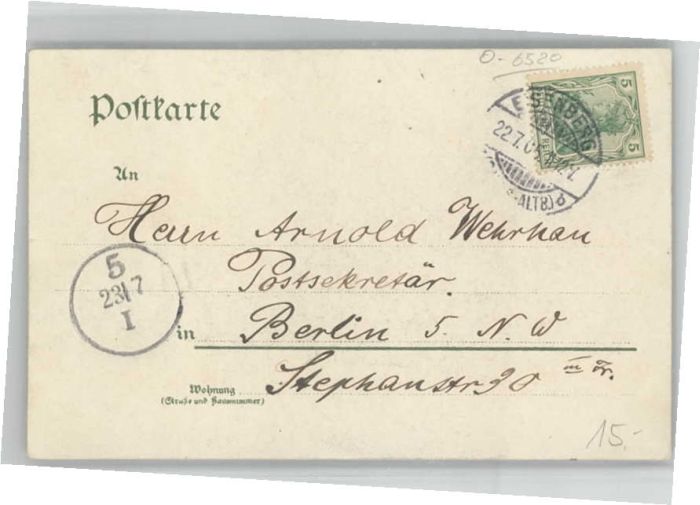 O-6520
5
5
Postkarte
EISENBERG
22.7.
(S-ALTB)
An
Herrn Arnold Wehrhan
Postsekretär.
5
23/7
I
in Berlin 5. N. W
Wohnung Stephanstr 30 III Tr.
(Straße und Hausnummer)
15.-